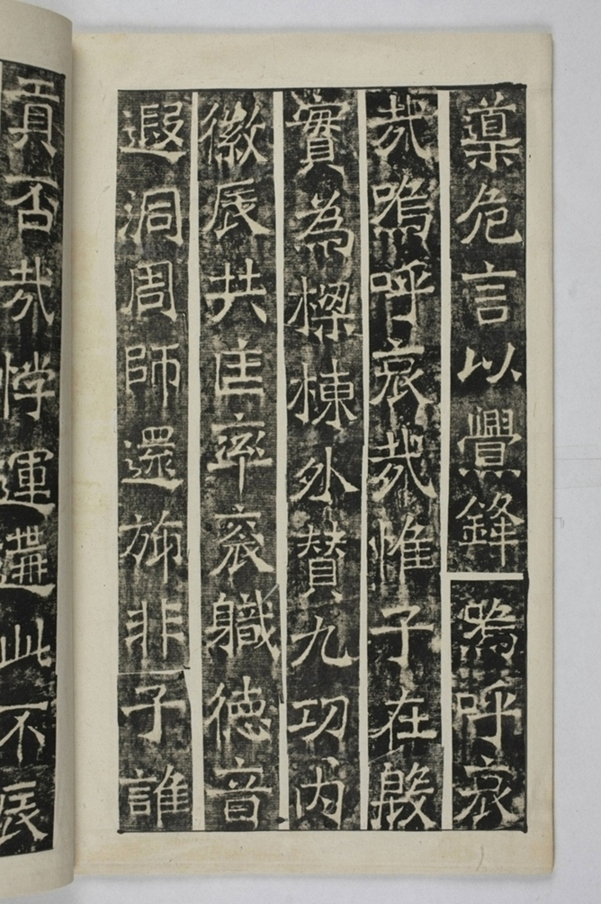 藁危言以釁鋒嗚呼哀
哉嗚呼哀哉惟子在殷
實為樑棟外賛九功内
徽辰共匡率袞軄德音
遐洞周師還旆非子誰
貢否哉悖運遘此不辰